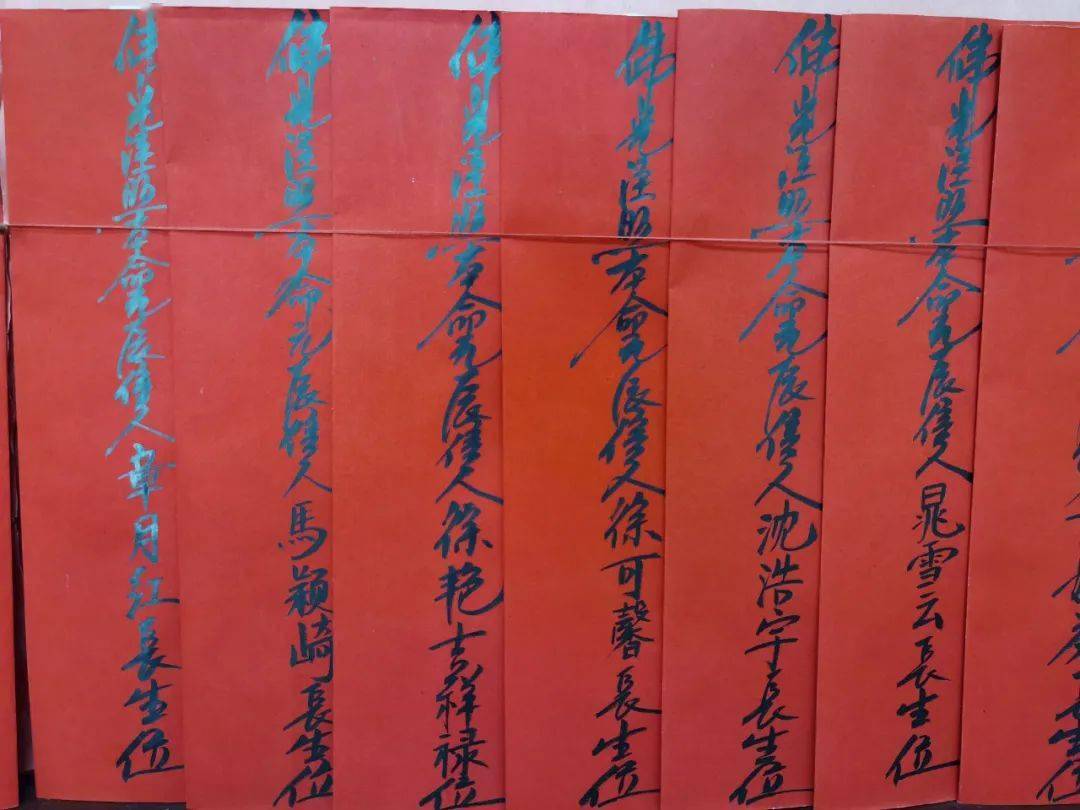 佛光注照本命元辰信人章月红長生位
佛光注照本命元辰信人馬颖崎長生位
佛光注照本命元辰信人徐艳吉祥禄位
佛光注照本命元辰信人徐可馨長生位
佛光注照本命元辰信人沈浩宇長生位
佛光注照本命元辰信人晁雪云長生位